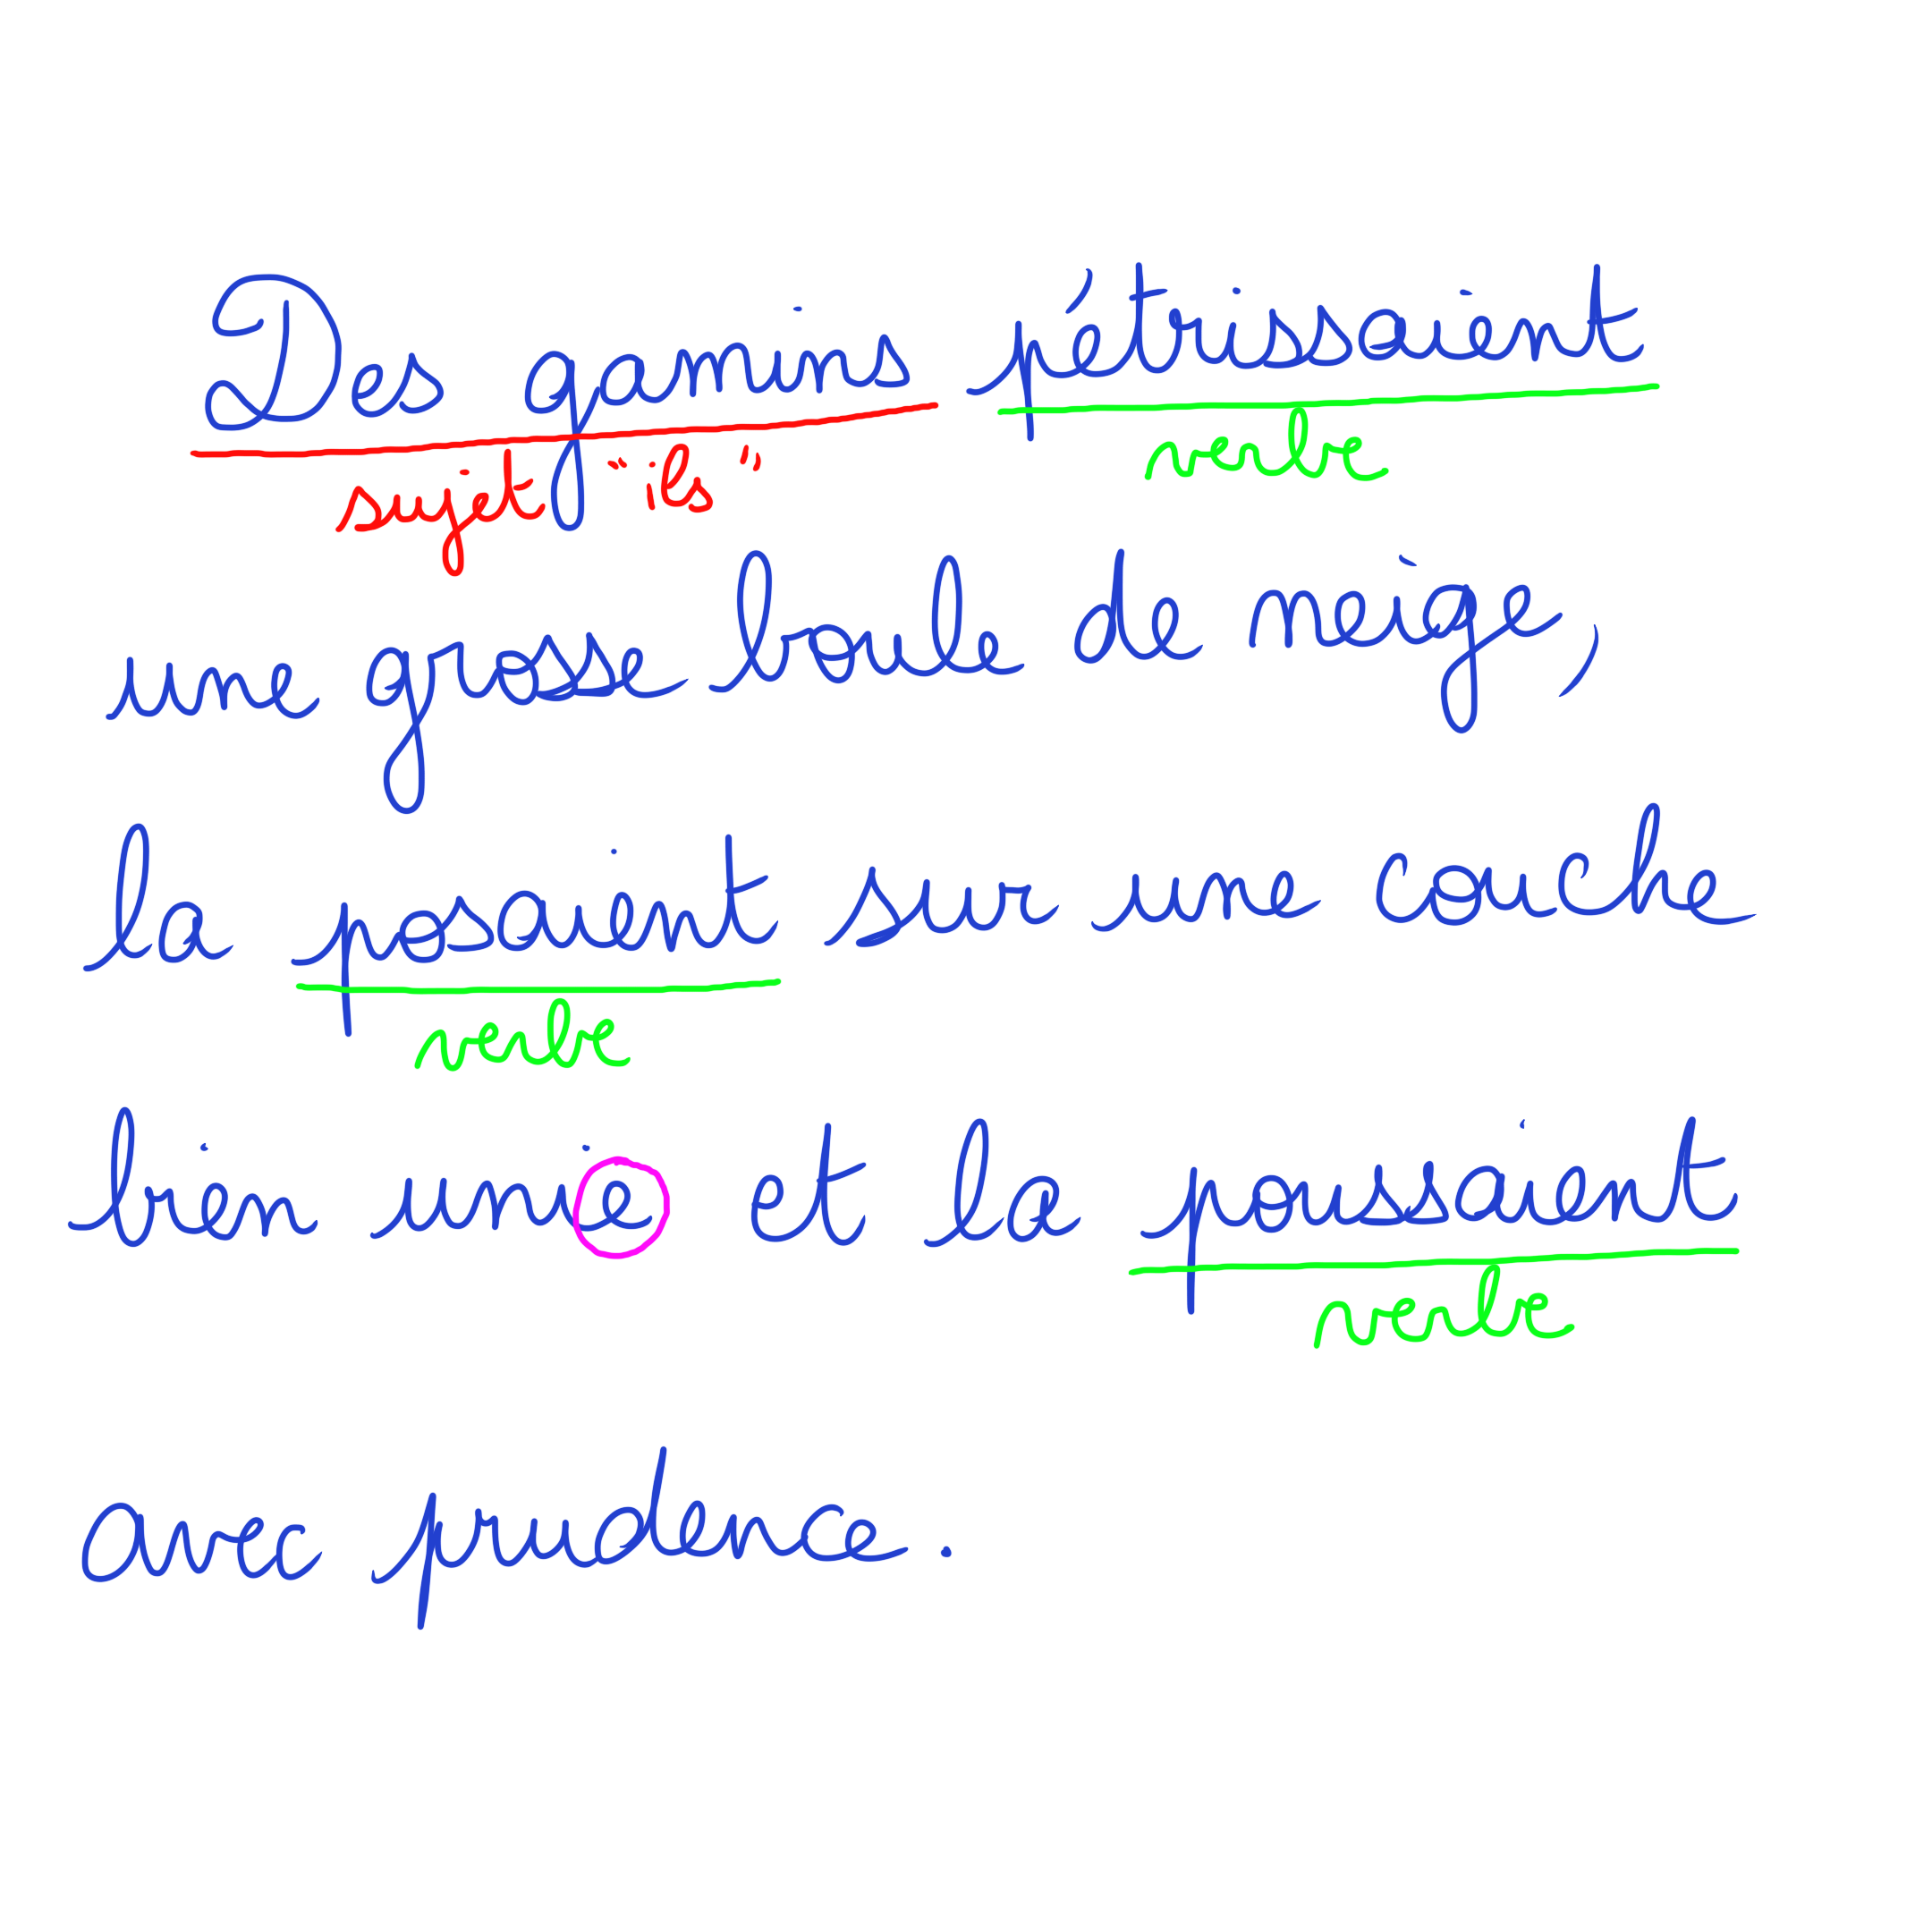 Des gamins pétrissaient
sujet "ils" verbe
une grosse boule de neige,
la posaient sur une couche
verbe
bien unie et la poussaient
verbe
avec prudence.